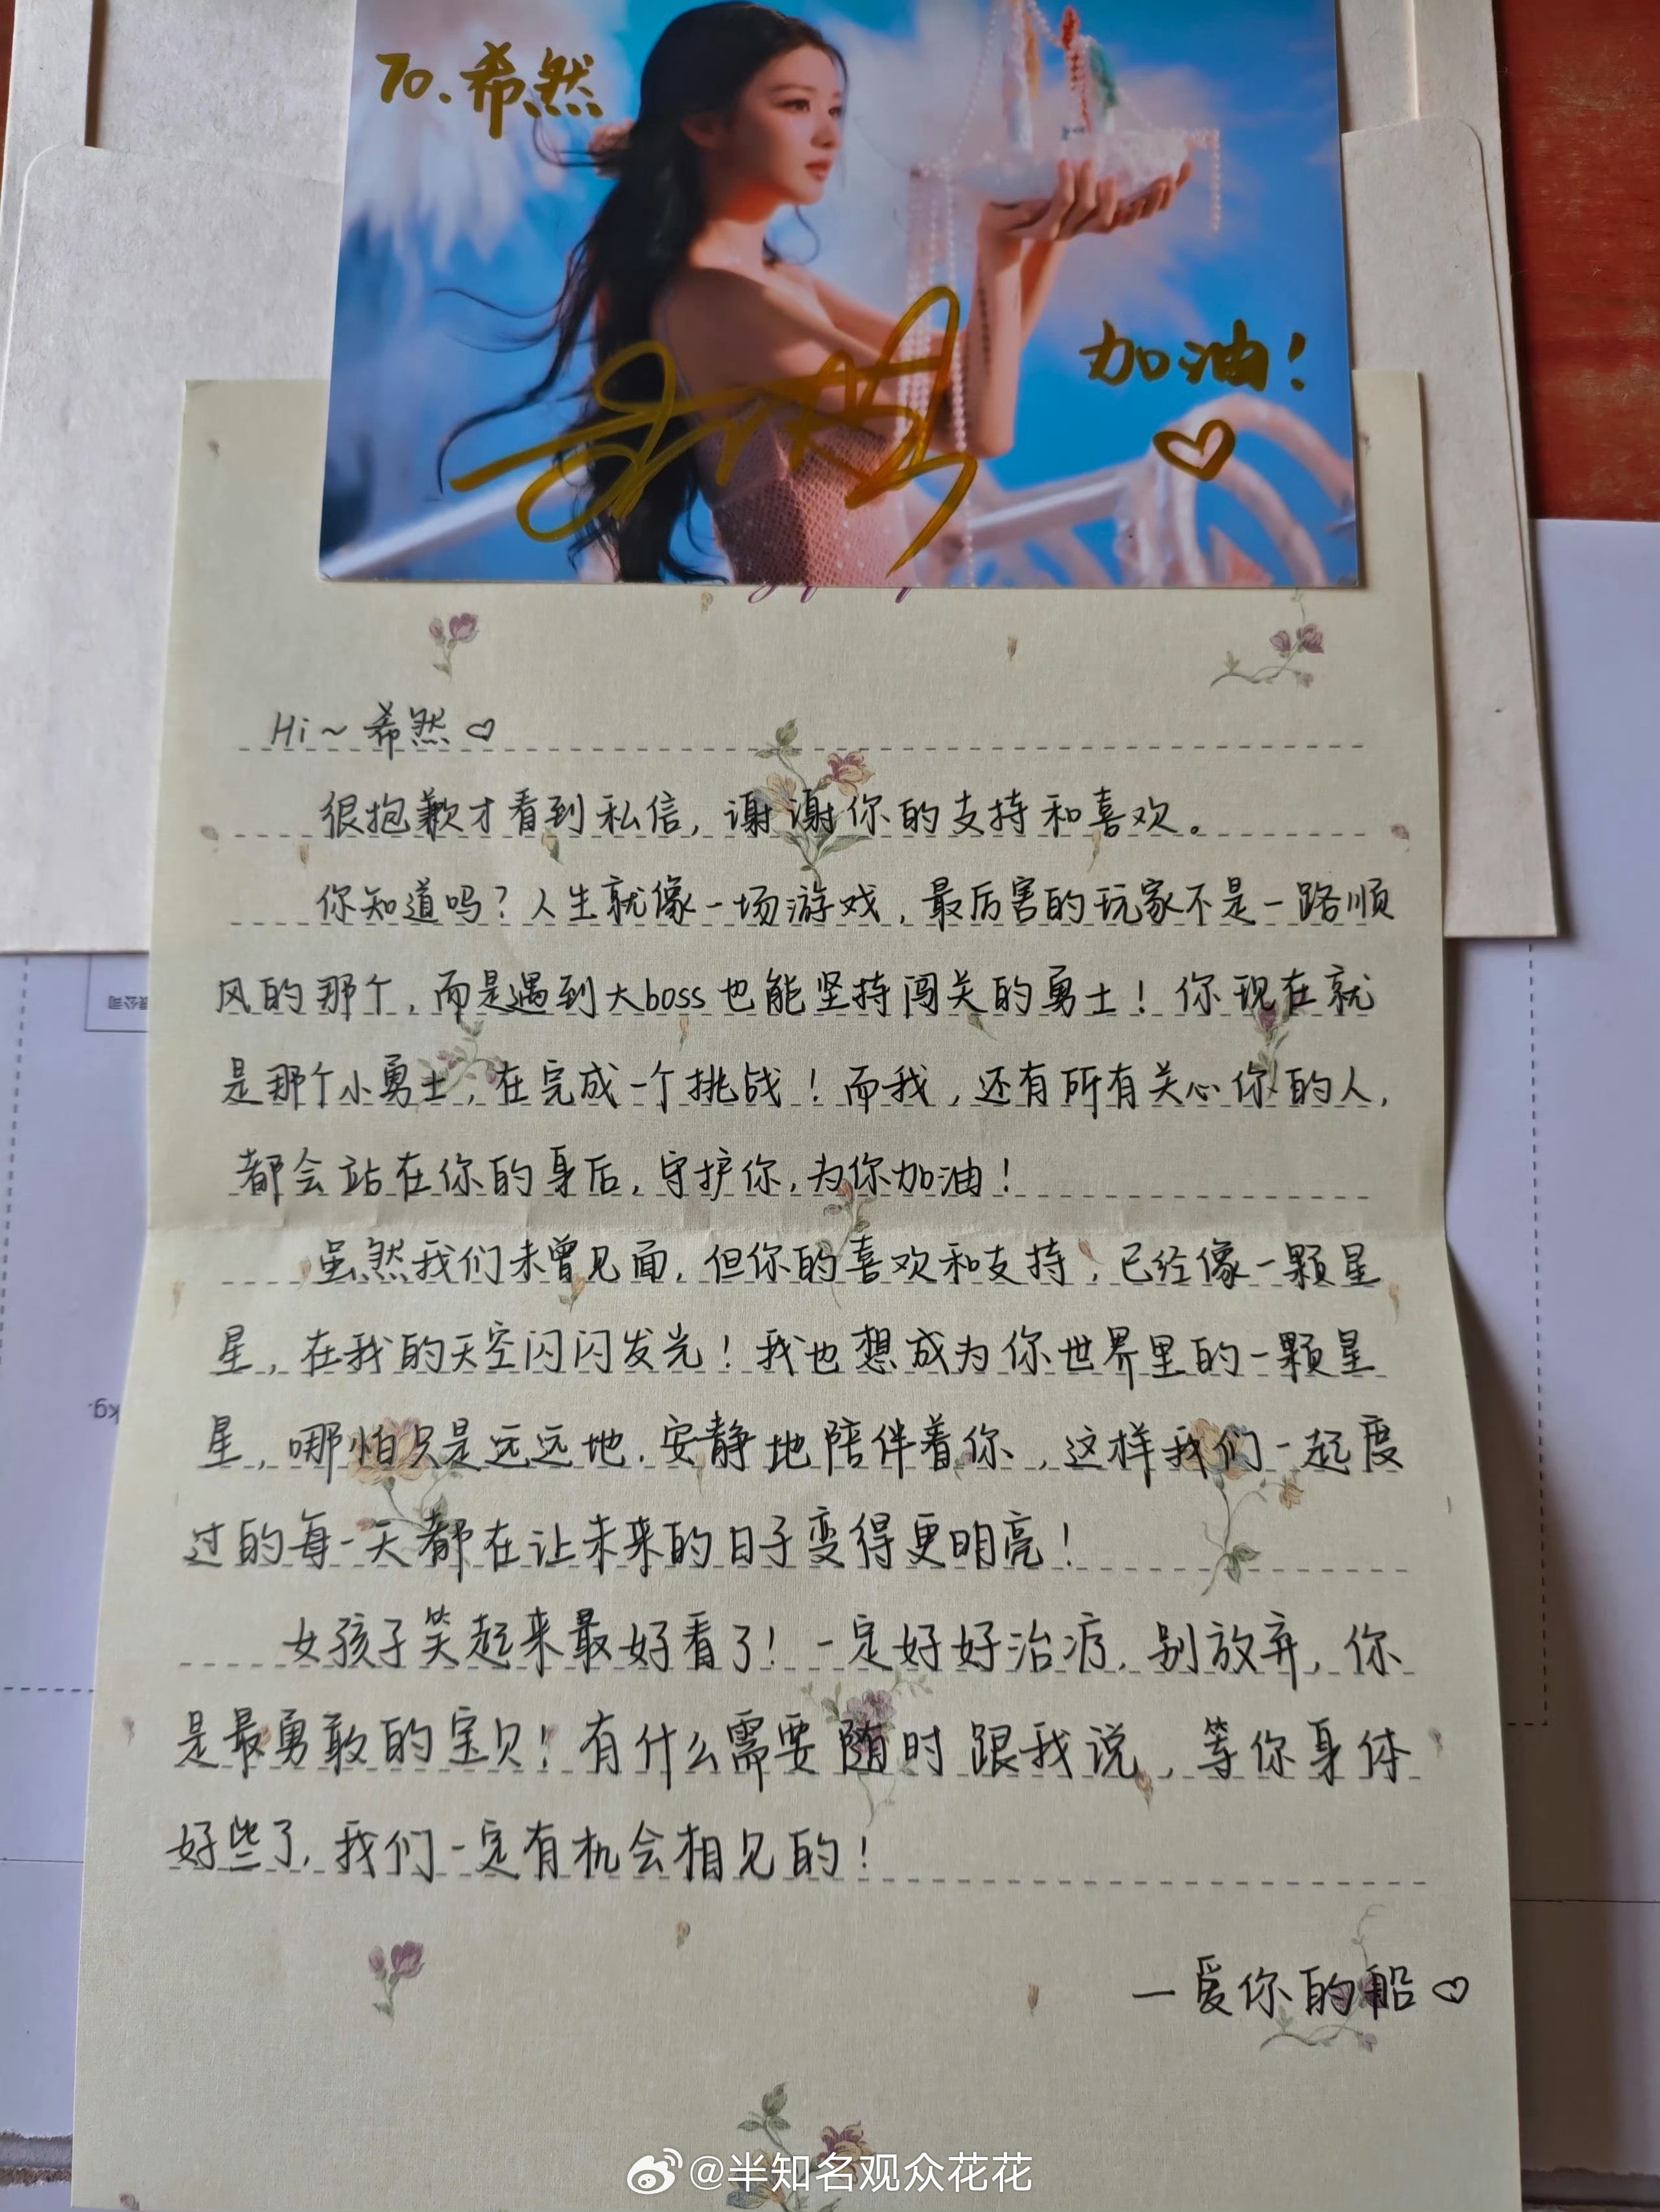 To.希然
加油!
Hi~希然♡
很抱歉才看到私信,谢谢你的支持和喜欢。
你知道吗?人生就像一场游戏,最厉害的玩家不是一路顺
风的那个,而是遇到大boss也能坚持闯关的勇士!你现在就
是那个小勇士,在完成一个挑战!而我,还有所有关心你的人,
都会站在你的身后,守护你,为你加油!
虽然我们未曾见面,但你的喜欢和支持,已经像一颗星
星,在我的天空闪闪发光!我也想成为你世界里的一颗星
星,哪怕只是远远地.安静地陪伴着你,这样我们一起度
过的每一天都在让未来的日子变得更明亮!
女孩子笑起来最好看了!一定好好治疗,别放弃,你
是最勇敢的宝贝!有什么需要随时跟我说,等你身体
好些了,我们一定有机会相见的!
—爱你的船♡
kg.
@半知名观众花花